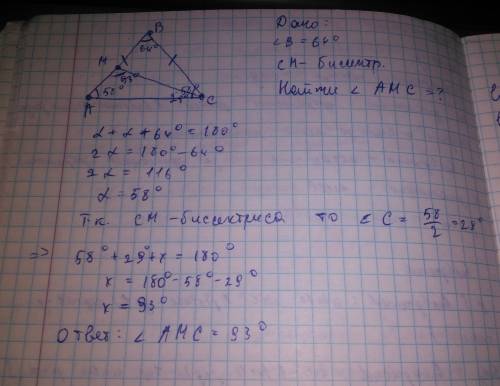 B
64°
M
93°
58°
29°
58°
A
C
Дано:
∠B = 64°
CM - биссектр.
Найти ∠ AMC = ?
α + α + 64° = 180°
2α = 180° - 64°
2α = 116°
α = 58°
Т.к. CM - биссектриса то ∠ C = 58/2 = 29°
=> 58° + 29° + x = 180°
x = 180° - 58° - 29°
x = 93°
Ответ: ∠ AMC = 93°